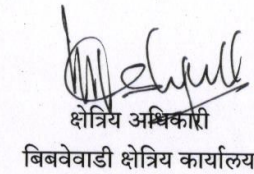 क्षेत्रिय अधिकारी
बिबवेवाडी क्षेत्रिय कार्यालय